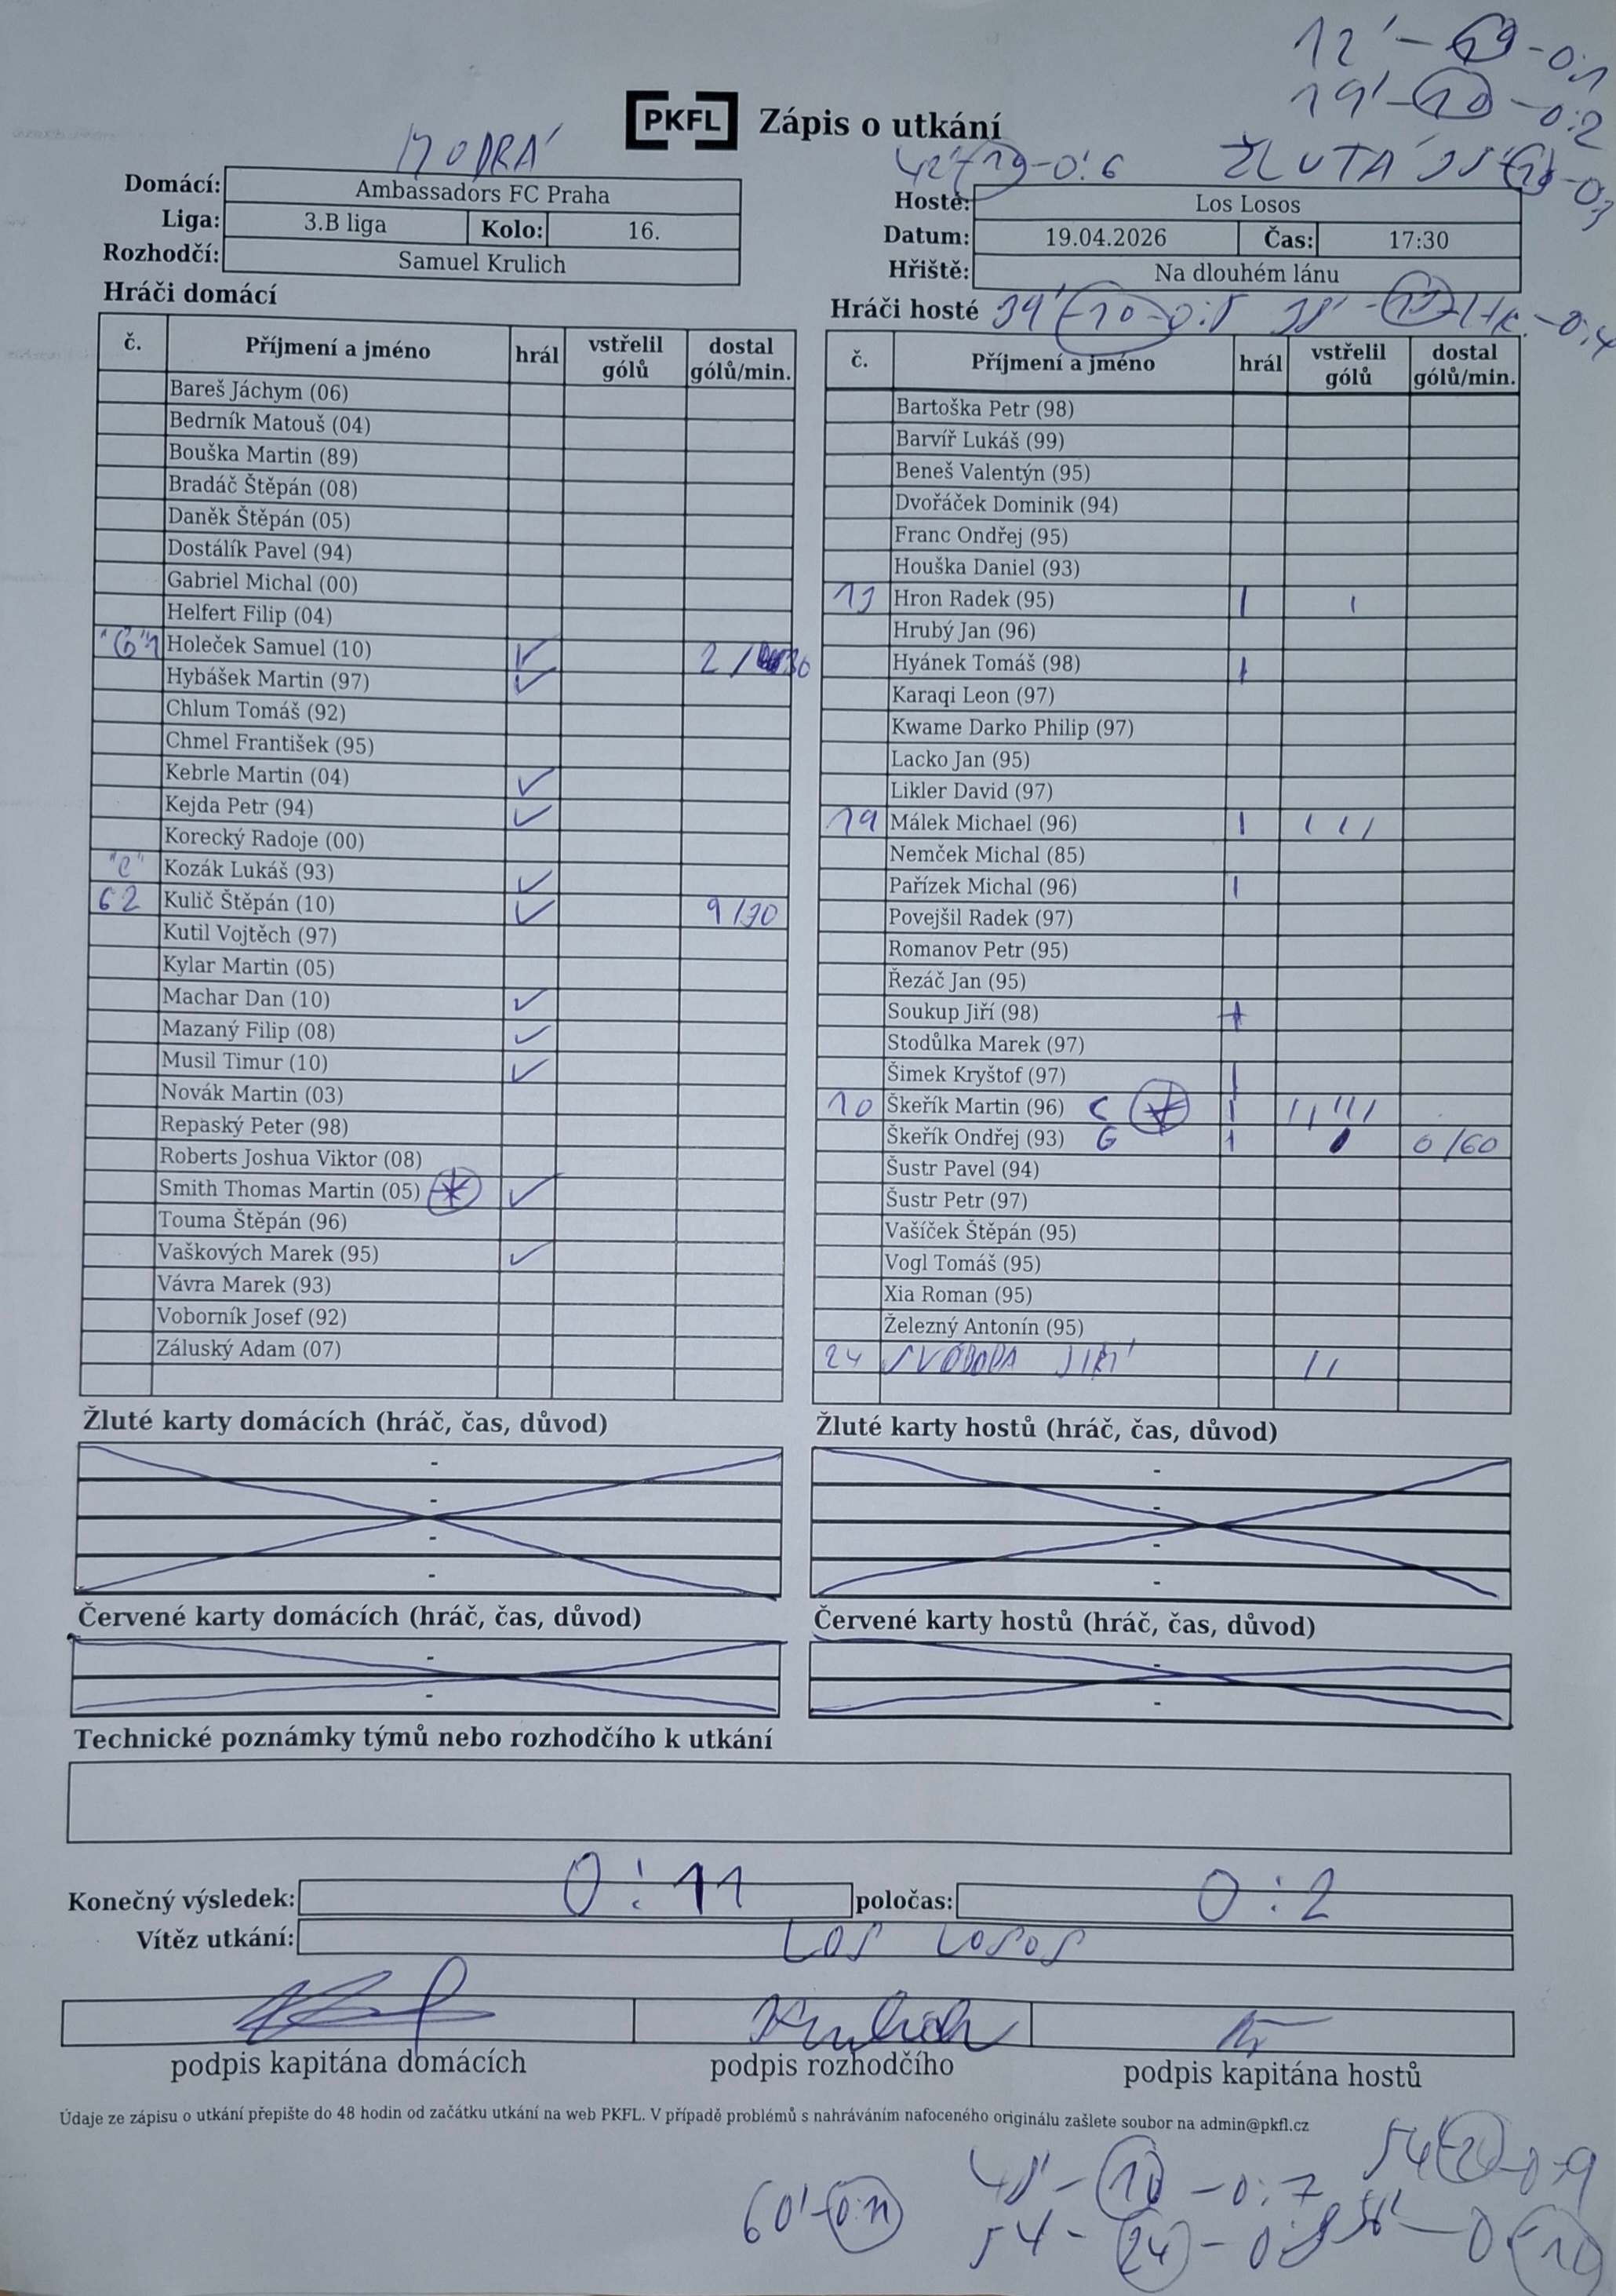 12' - 69 - 0:1
19' - 10 - 0:2
PKFL Zápis o utkání
MODRÁ
42' - 19 - 0:6
ŽLUTÁ
Domácí: Ambassadors FC Praha
Liga: 3.B liga Kolo: 16.
Rozhodčí: Samuel Krulich
Hosté: Los Losos
Datum: 19.04.2026 Čas: 17:30
Hřiště: Na dlouhém lánu
Hráči domácí
č. Příjmení a jméno hrál vstřelil gólů dostal gólů/min.
Bareš Jáchym (06)
Bedrník Matouš (04)
Bouška Martin (89)
Bradáč Štěpán (08)
Daněk Štěpán (05)
Dostálík Pavel (94)
Gabriel Michal (00)
Helfert Filip (04)
"G" 1 Holeček Samuel (10) ✓ 2 / 30
Hybášek Martin (97) ✓
Chlum Tomáš (92)
Chmel František (95)
Kebrle Martin (04) ✓
Kejda Petr (94) ✓
Korecký Radoje (00)
"C" Kozák Lukáš (93) ✓
62 Kulič Štěpán (10) ✓ 9 / 30
Kutil Vojtěch (97)
Kylar Martin (05)
Machar Dan (10) ✓
Mazaný Filip (08) ✓
Musil Timur (10) ✓
Novák Martin (03)
Repaský Peter (98)
Roberts Joshua Viktor (08)
Smith Thomas Martin (05) * ✓
Touma Štěpán (96)
Vaškových Marek (95) ✓
Vávra Marek (93)
Voborník Josef (92)
Záluský Adam (07)
Hráči hosté
39' - 10 - 0:5
č. Příjmení a jméno hrál vstřelil gólů dostal gólů/min.
Bartoška Petr (98)
Barvíř Lukáš (99)
Beneš Valentýn (95)
Dvořáček Dominik (94)
Franc Ondřej (95)
Houška Daniel (93)
Hron Radek (95) | |
Hrubý Jan (96)
Hyánek Tomáš (98) |
Karaqi Leon (97)
Kwame Darko Philip (97)
Lacko Jan (95)
Likler David (97)
19 Málek Michael (96) | | | |
Nemček Michal (85)
Pařízek Michal (96) |
Povejšil Radek (97)
Romanov Petr (95)
Řezáč Jan (95)
Soukup Jiří (98)
Stodůlka Marek (97)
Šimek Kryštof (97) |
10 Škeřík Martin (96) C * | | | | | |
Škeřík Ondřej (93) G | 0 / 60
Šustr Pavel (94)
Šustr Petr (97)
Vašíček Štěpán (95)
Vogl Tomáš (95)
Xia Roman (95)
Železný Antonín (95)
24 SVOBODA JIŘÍ | |
Žluté karty domácích (hráč, čas, důvod)
-
-
-
-
Žluté karty hostů (hráč, čas, důvod)
-
-
-
-
Červené karty domácích (hráč, čas, důvod)
-
-
Červené karty hostů (hráč, čas, důvod)
-
-
Technické poznámky týmů nebo rozhodčího k utkání
Konečný výsledek: 0 : 11 poločas: 0 : 2
Vítěz utkání: LOS LOSOS
Krulich
podpis kapitána domácích podpis rozhodčího podpis kapitána hostů
Údaje ze zápisu o utkání přepište do 48 hodin od začátku utkání na web PKFL. V případě problémů s nahráváním nafoceného originálu zašlete soubor na admin@pkfl.cz
- 10 - 0:7
54 - 24 - 0:8
60' - 0:11